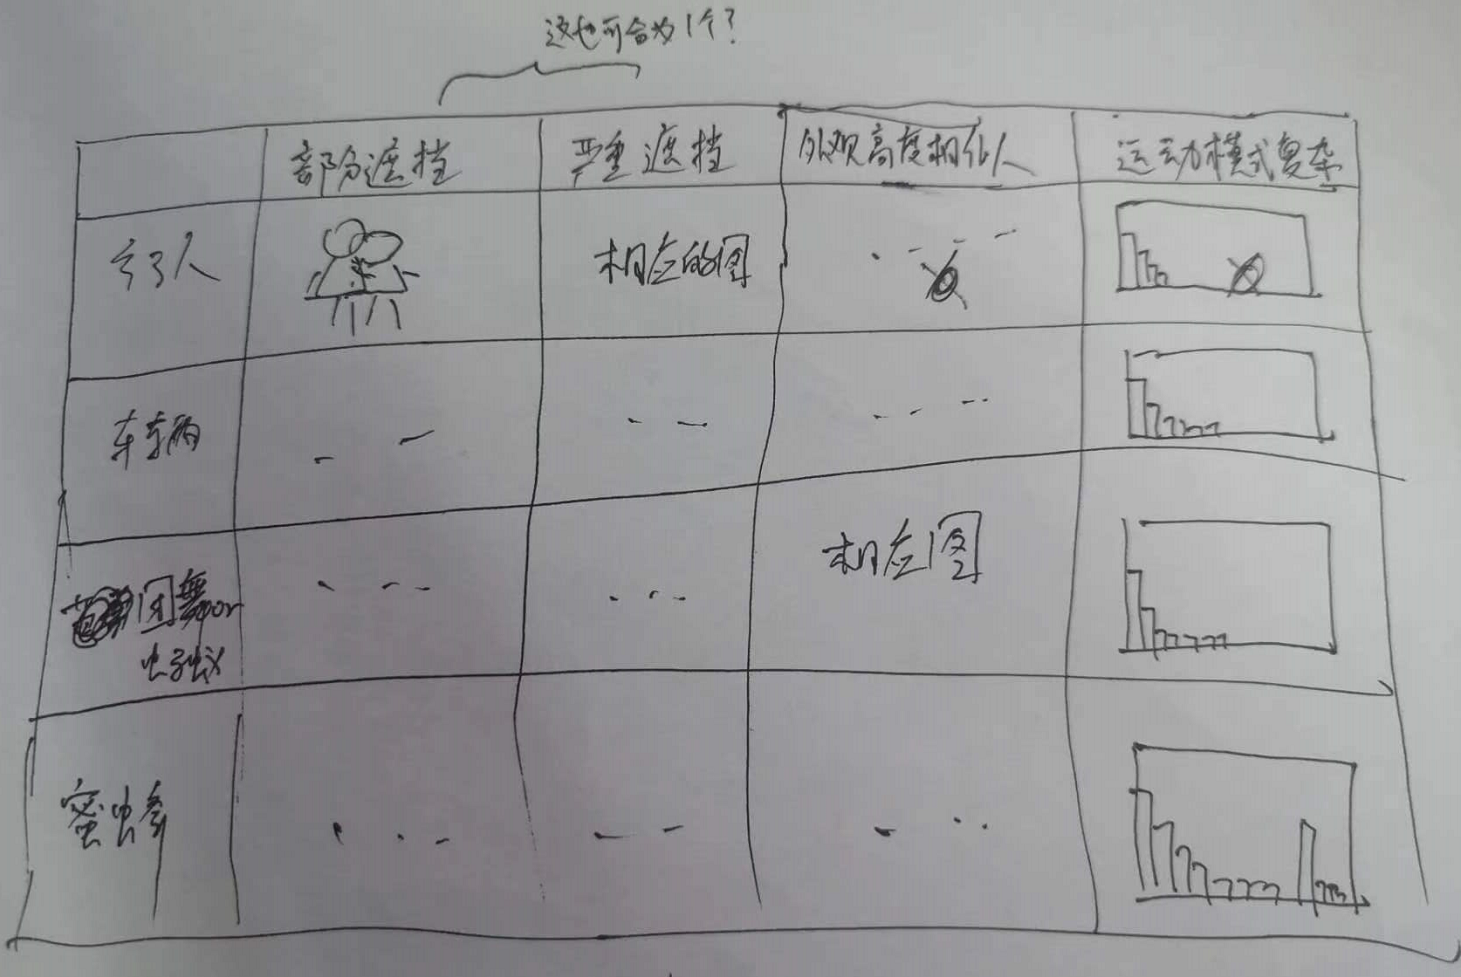 这也可合为1个?
部分遮挡
严重遮挡
外观高度相似
运动模式复杂
行人
相应的图
车辆
团舞or
蚂蚁
相应图
蜜蜂